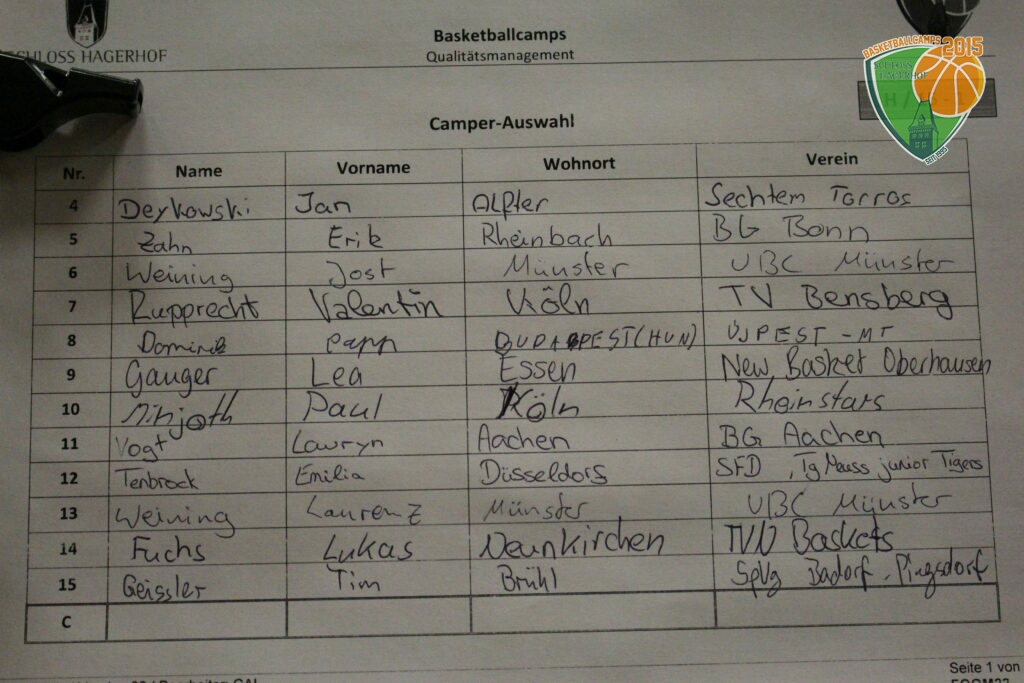 SCHLOSS HAGERHOF
Basketballcamps
Qualitätsmanagement
BASKETBALLCAMPS 2015
SCHLOSS
HAGERHOF
SEIT 1995
Camper-Auswahl
Nr. Name Vorname Wohnort Verein
4 Deykowski Jan Alfter Sechtem Torros
5 Zahn Erik Rheinbach BG Bonn
6 Weining Jost Münster UBC Münster
7 Rupprecht Valentin Köln TV Bensberg
8 Dominik Papp BUDAPEST(HUN) ÚJPEST-MT
9 Gauger Lea Essen New Basket Oberhausen
10 Paul Köln Rheinstars
11 Vogt Lauryn Aachen BG Aachen
12 Tenbrock Emilia Düsseldorf SFD, Tg Neuss junior Tigers
13 Weining Laurenz Münster UBC Münster
14 Fuchs Lukas Neunkirchen TVN Baskets
15 Geissler Tim Brühl SpVg Badorf, Pingsdorf
C
Seite 1 von